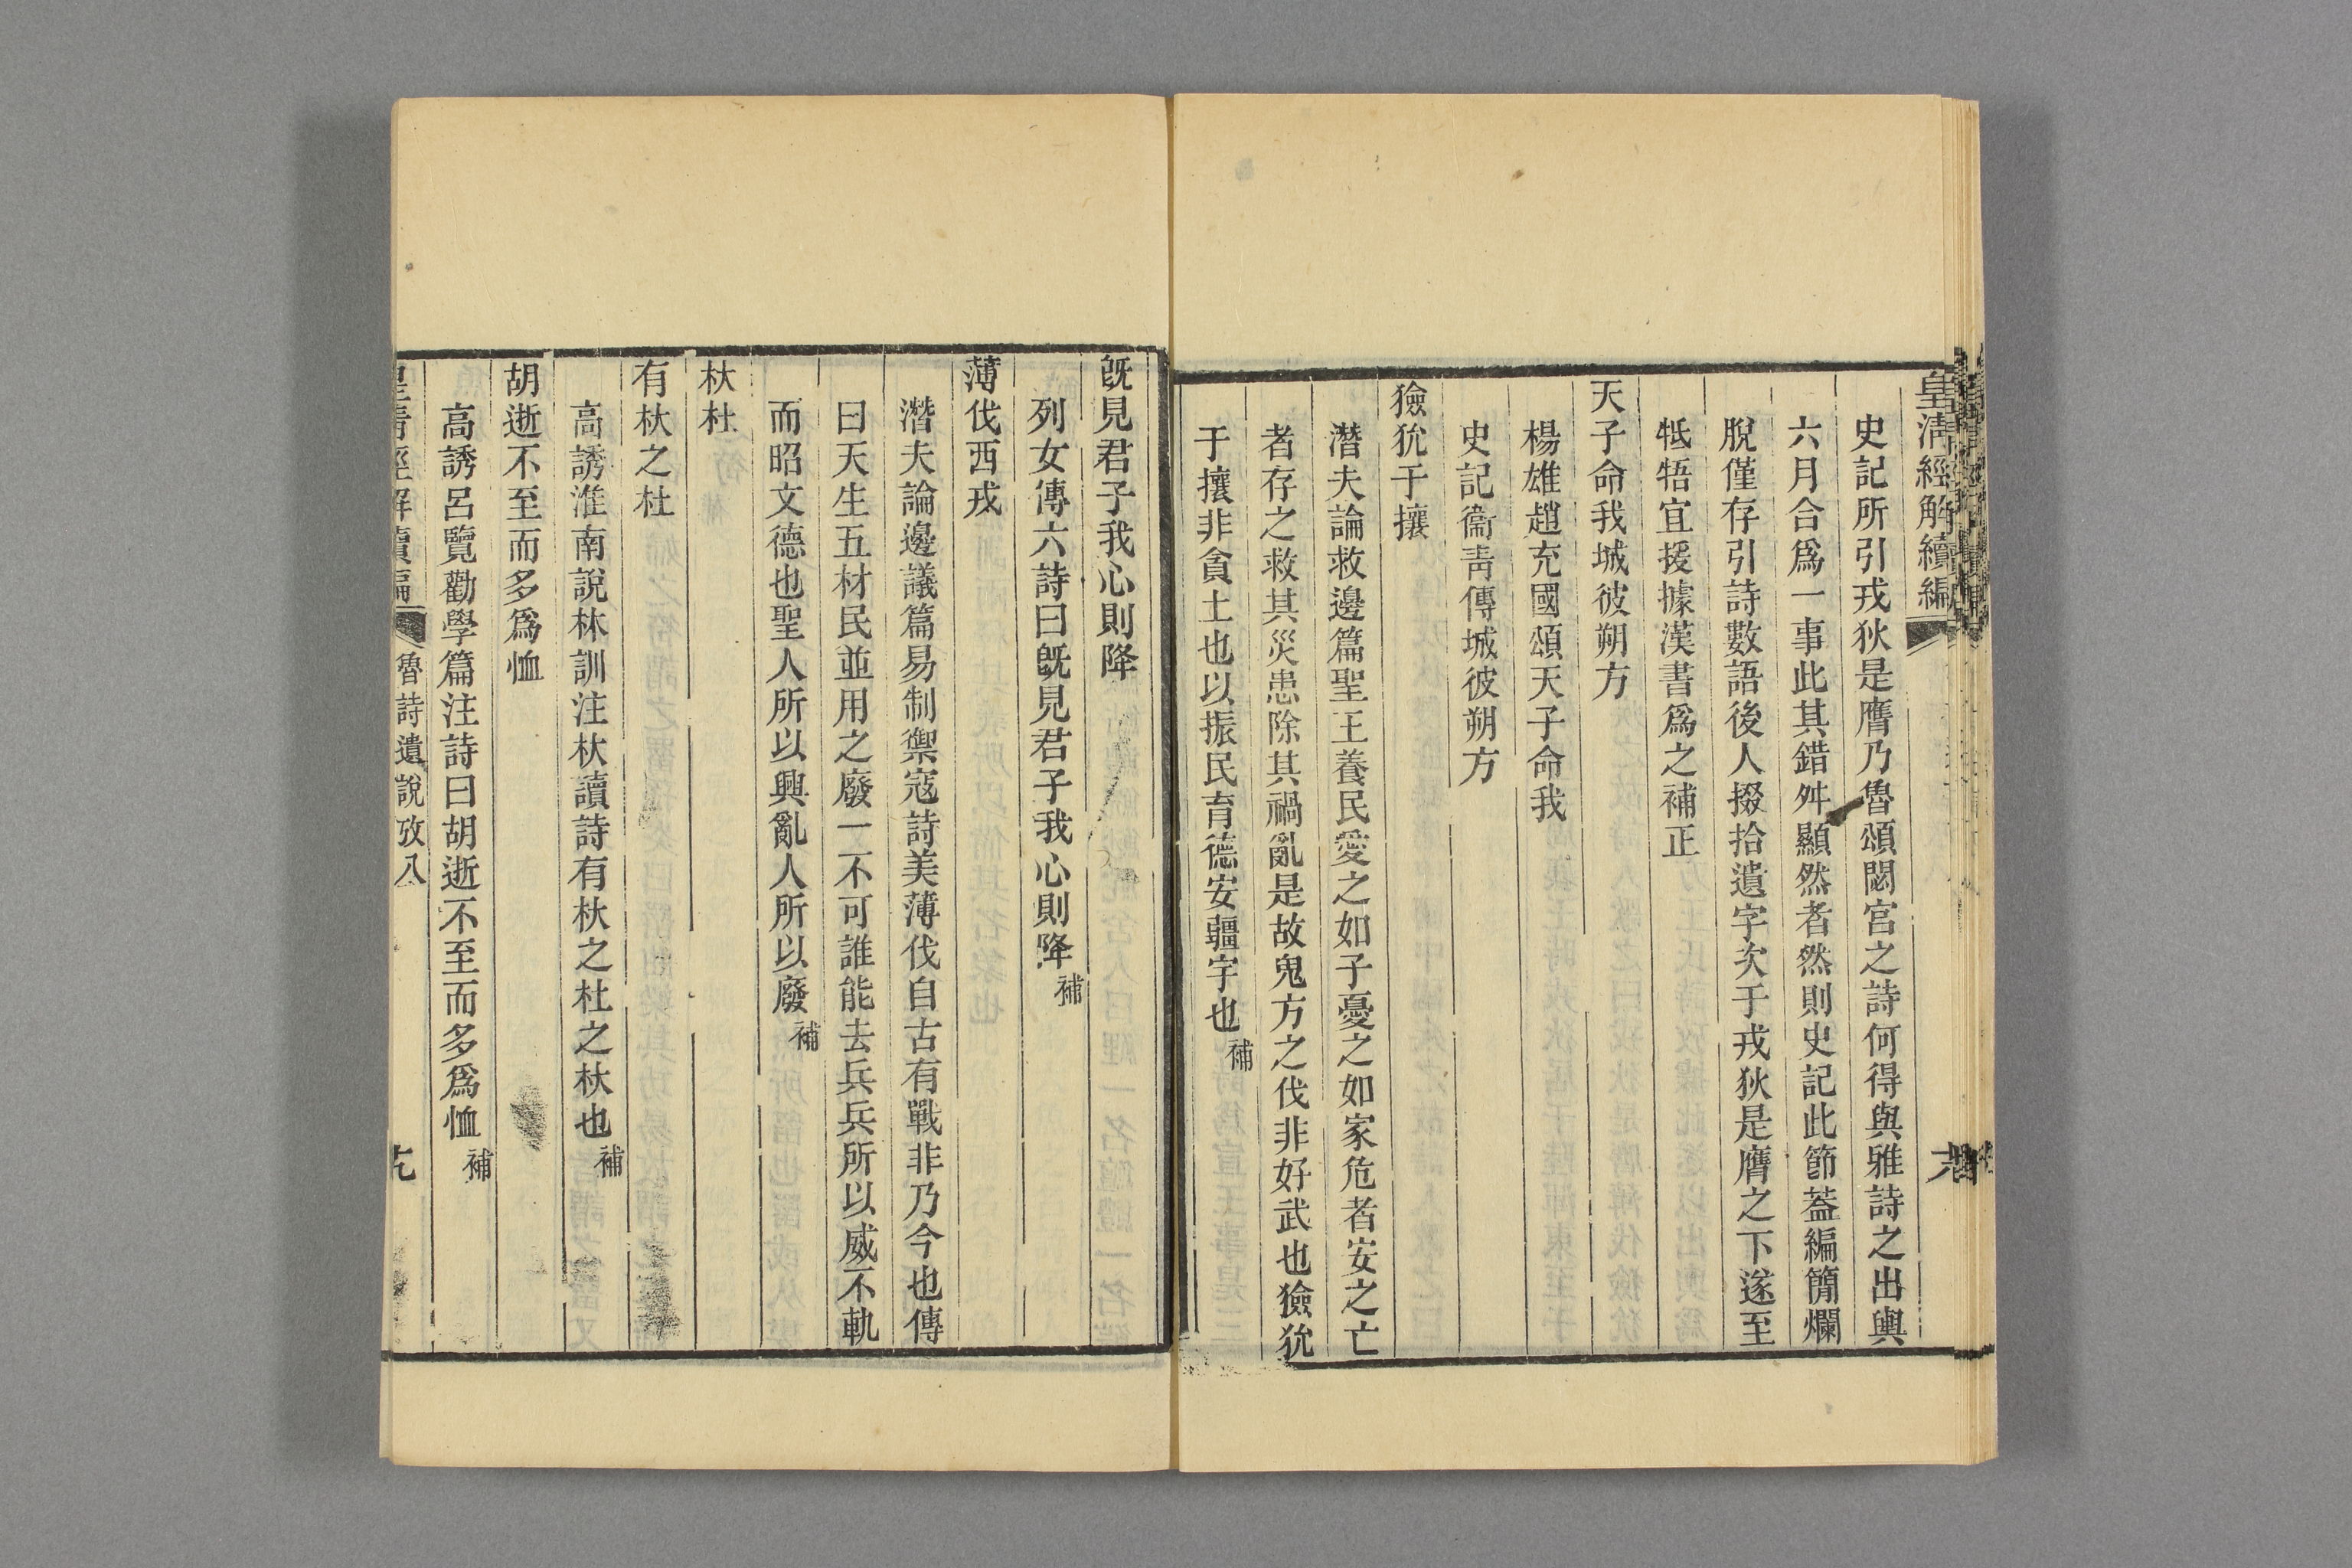 皇清經解續編
史記所引戎狄是膺乃魯頌閟宮之詩何得與雅詩之出輿
六月合爲一事此其錯舛顯然者然則史記此節葢編簡爛
脫僅存引詩數語後人掇拾遺字次于戎狄是膺之下遂至
牴牾宜援據漢書爲之補正
天子命我城彼朔方
楊雄趙充國頌天子命我
史記衞靑傳城彼朔方
獫狁于攘
潛夫論救邊篇聖王養民愛之如子憂之如家危者安之亡
者存之救其災患除其禍亂是故鬼方之伐非好武也獫狁
于攘非貪土也以振民育德安疆宇也補
旣見君子我心則降
列女傳六詩曰旣見君子我心則降補
薄伐西戎
潛夫論邊議篇易制禦寇詩美薄伐自古有戰非乃今也傳
曰天生五材民並用之廢一不可誰能去兵兵所以威不軌
而昭文德也聖人所以興亂人所以廢補
杕杜
有杕之杜
高誘淮南說林訓注杕讀詩有杕之杜之杕也補
胡逝不至而多爲恤
高誘呂覽勸學篇注詩曰胡逝不至而多爲恤補
皇淸經解續編 魯詩遺說攷八